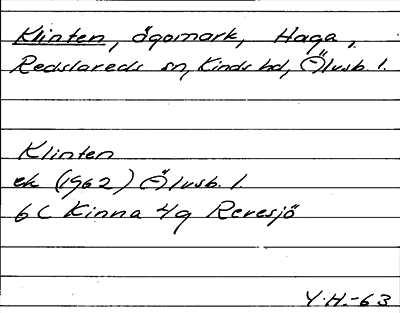 Klinten, ägomark, Haga,
Redslareds sn, Kinds hd, Älvsb. l.
Klinten
ek (1962) Älvsb. l.
6C Kinna 4g Reresjö
Y.H.-63